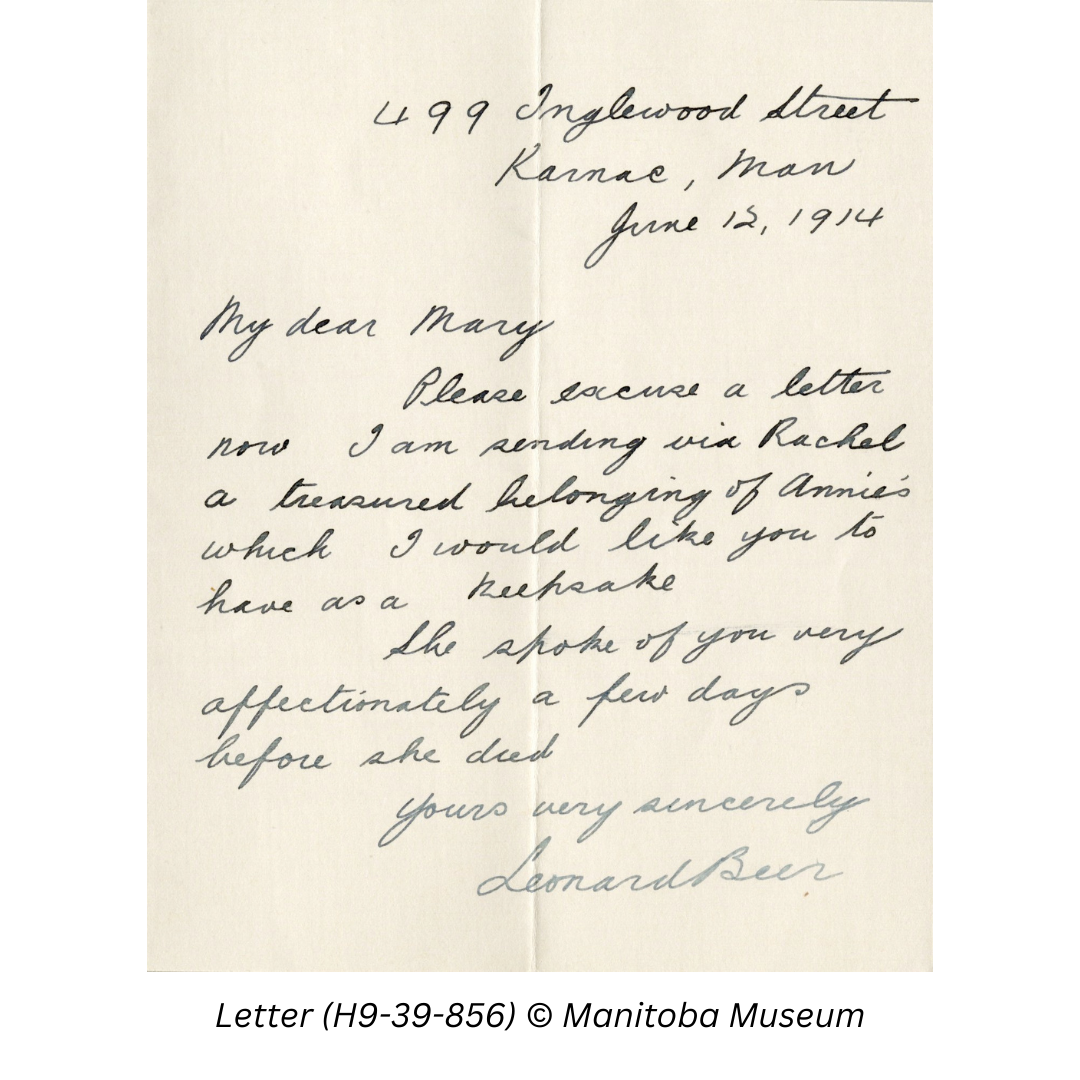 499 Inglewood Street
Karnac, Man
June 12, 1914
My dear Mary
Please excuse a letter
now I am sending via Rachel
a treasured belonging of Annie's
which I would like you to
have as a keepsake
She spoke of you very
affectionately a few days
before she died
yours very sincerely
Leonard Beer
Letter (H9-39-856) © Manitoba Museum